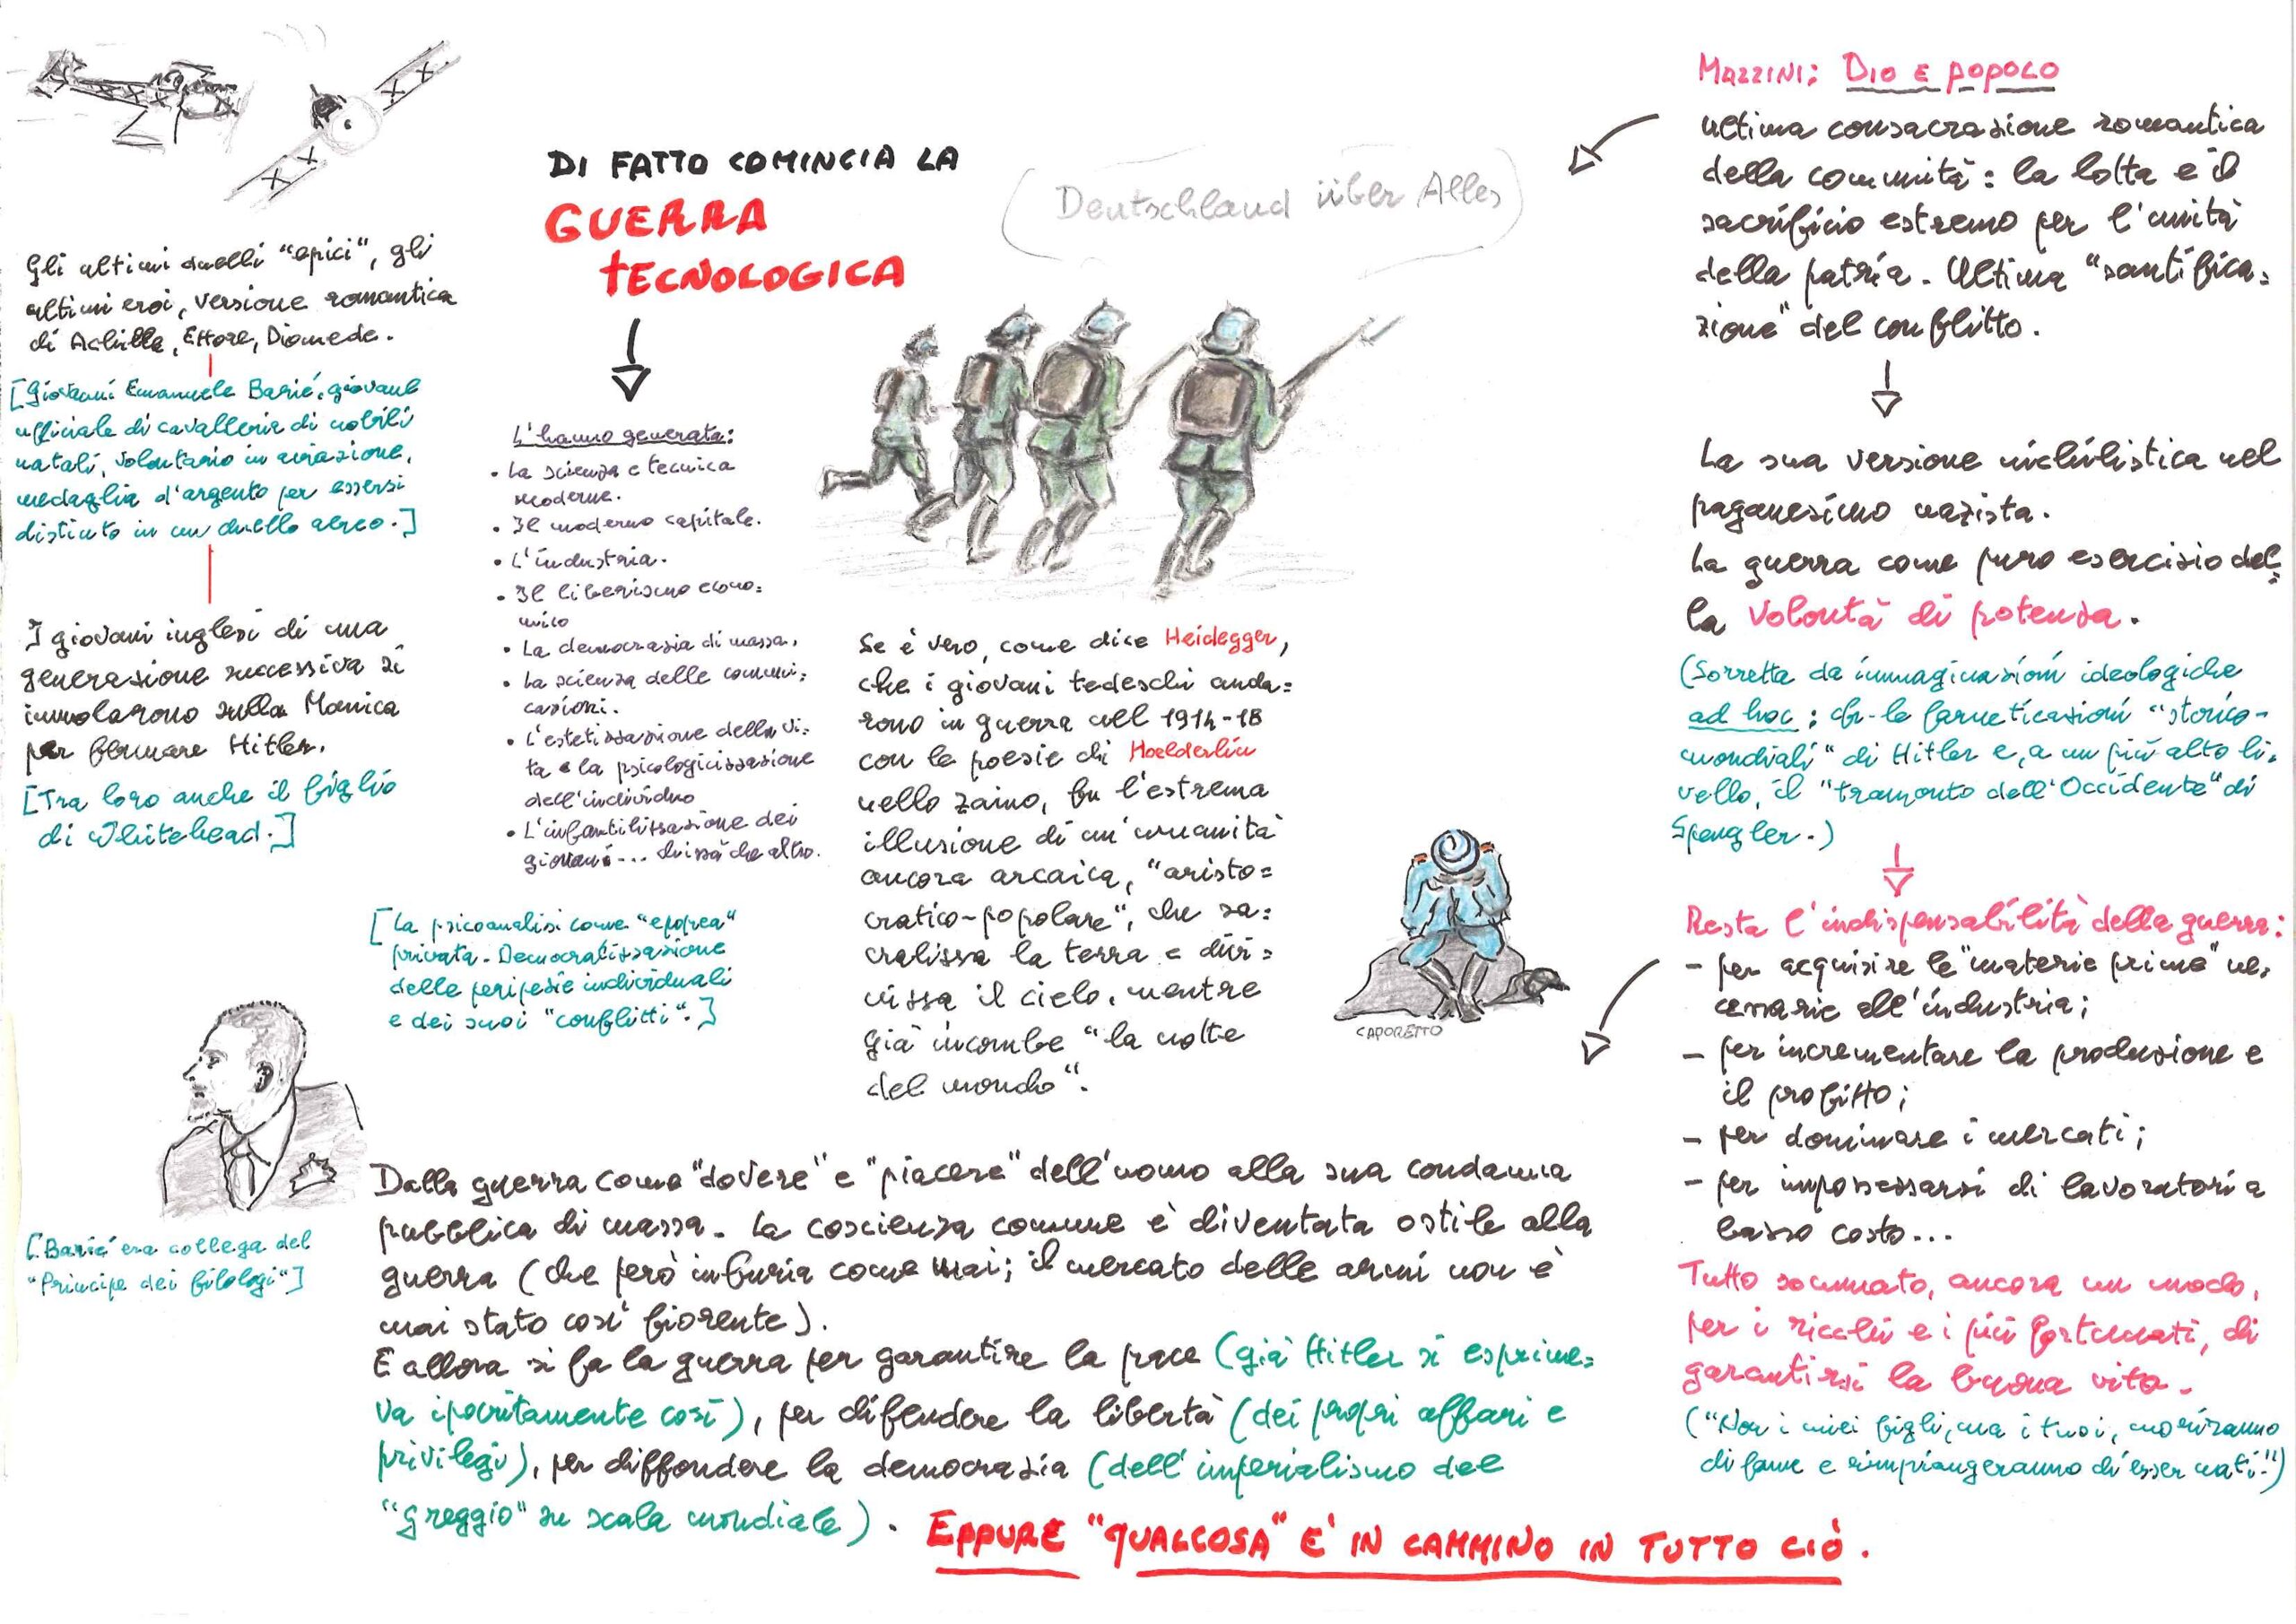 Gli ultimi duelli "epici", gli
ultimi eroi, versione romantica
di Achille, Ettore, Diomede.
[Giovanni Emanuele Barié, giovane
ufficiale di cavalleria di nobili
natali, volontario in aviazione,
medaglia d'argento per essersi
distinto in un duello aereo.]
I giovani inglesi di una
generazione successiva si
immolarono sulla Manica
per fermare Hitler.
[Tra loro anche il figlio
di Whitehead.]
[Barié era collega del
"Principe dei filologi"]
DI FATTO COMINCIA LA
GUERRA
TECNOLOGICA
L'hanno generata:
• La scienza e tecnica
moderne.
• Il moderno capitale.
• L'industria.
• Il liberismo econo=
mico
• La democrazia di massa.
• La scienza delle comuni=
cazioni.
• L'estetizzazione della vi=
ta e la psicologicizzazione
dell'individuo
• L'infantilizzazione dei
giovani... chissà che altro.
[La psicoanalisi come "epopea"
privata. Democratizzazione
delle peripezie individuali
e dei suoi "conflitti".]
(Deutschland über Alles)
Se è vero, come dice Heidegger,
che i giovani tedeschi anda=
rono in guerra nel 1914-18
con le poesie di Hoelderlin
nello zaino, fu l'estrema
illusione di un'umanità
ancora arcaica, "aristo=
cratico-popolare", che sa=
cralizza la terra e divi=
nizza il cielo, mentre
già incombe "la notte
del mondo".
CAPORETTO
Dalla guerra come "dovere" e "piacere" dell'uomo alla sua condanna
pubblica di massa. La coscienza comune è diventata ostile alla
guerra (che però infuria come mai; il mercato delle armi non è
mai stato così fiorente).
E allora si fa la guerra per garantire la pace (già Hitler si esprime=
va ipocritamente così), per difendere la libertà (dei propri affari e
privilegi), per diffondere la democrazia (dell'imperialismo del
"greggio" su scala mondiale).
EPPURE "QUALCOSA" E' IN CAMMINO IN TUTTO CIÒ.
MAZZINI: DIO E POPOLO
ultima consacrazione romantica
della comunità: la lotta e il
sacrificio estremo per l'unità
della patria. Ultima "santifica=
zione" del conflitto.
La sua versione nichilistica nel
paganesimo nazista.
La guerra come puro esercizio del=
la volontà di potenza.
(Sorretta da immaginazioni ideologiche
ad hoc: cfr. le farneticazioni "storico-
mondiali" di Hitler e, a un più alto li=
vello, il "tramonto dell'Occidente" di
Spengler.)
Resta l'indispensabilità della guerra:
- per acquisire le "materie prime" ne=
cessarie all'industria;
- per incrementare la produzione e
il profitto;
- per dominare i mercati;
- per impossessarsi di lavoratori a
basso costo...
Tutto sommato, ancora un modo,
per i ricchi e i più fortunati, di
garantirsi la buona vita.
("Non i miei figli, ma i tuoi, moriranno
di fame e rimpiangeranno di esser nati!")